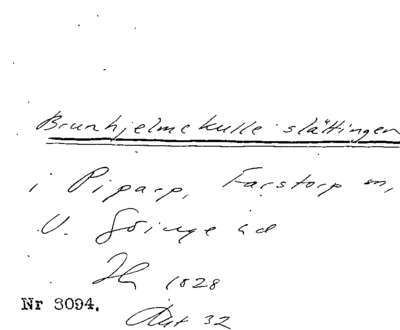 Brunhjelmekulle slättingen
i Piparp, Farstorp sn,
V. Göinge hd
1828
Nr 3094.
32